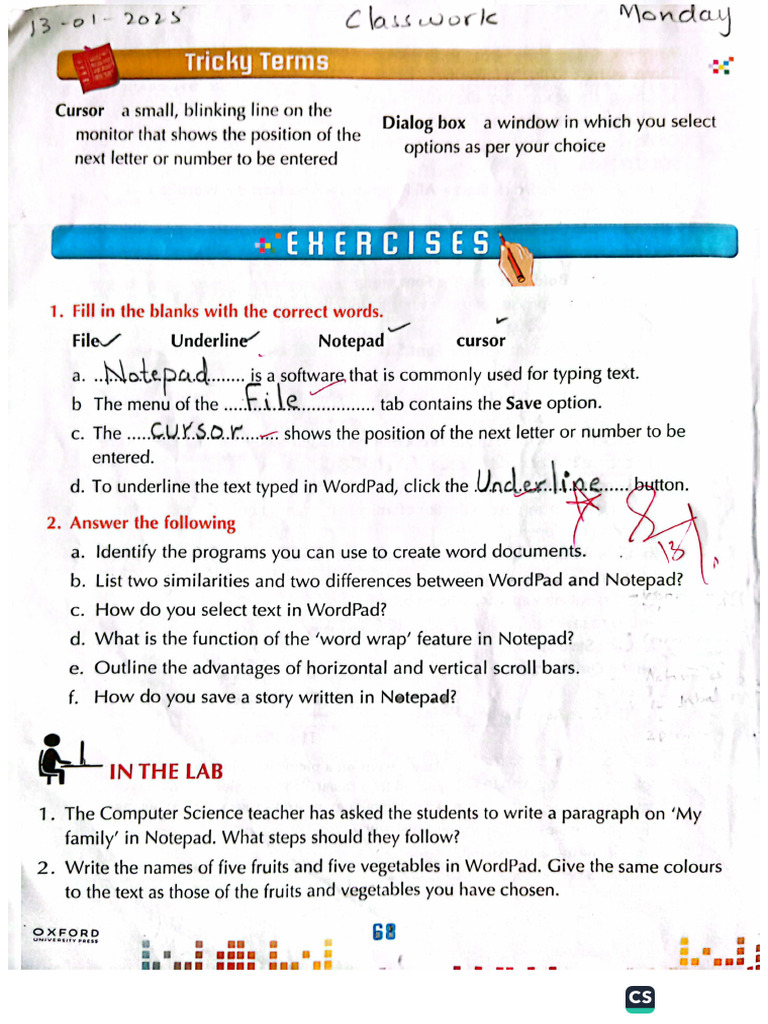 13-01-2025 Classwork Monday
Tricky Terms
Cursor a small, blinking line on the
monitor that shows the position of the
next letter or number to be entered
Dialog box a window in which you select
options as per your choice
EXERCISES
1. Fill in the blanks with the correct words.
File Underline Notepad cursor
a. ..Notepad........ is a software that is commonly used for typing text.
b The menu of the .....File............... tab contains the Save option.
c. The .....cursor...... shows the position of the next letter or number to be
entered.
d. To underline the text typed in WordPad, click the .Underline..... button.
2. Answer the following
a. Identify the programs you can use to create word documents.
b. List two similarities and two differences between WordPad and Notepad?
c. How do you select text in WordPad?
d. What is the function of the ‘word wrap’ feature in Notepad?
e. Outline the advantages of horizontal and vertical scroll bars.
f. How do you save a story written in Notepad?
IN THE LAB
1. The Computer Science teacher has asked the students to write a paragraph on ‘My
family’ in Notepad. What steps should they follow?
2. Write the names of five fruits and five vegetables in WordPad. Give the same colours
to the text as those of the fruits and vegetables you have chosen.
OXFORD
UNIVERSITY PRESS
68
CS